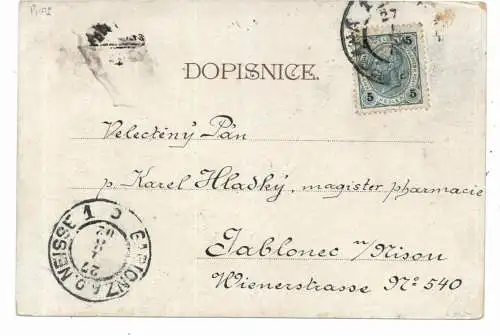 DOPISNICE.
5 5
Velectěný Pán
p. Karel Hladký, magister pharmacie
Jablonec n/Nisou
Wienerstrasse No 540
GABLONZ A.D. NEISSE 1
27
02